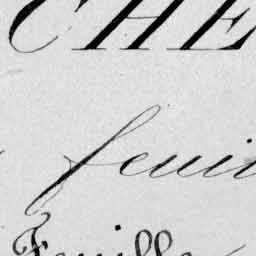 CHE
feuil
Feuille